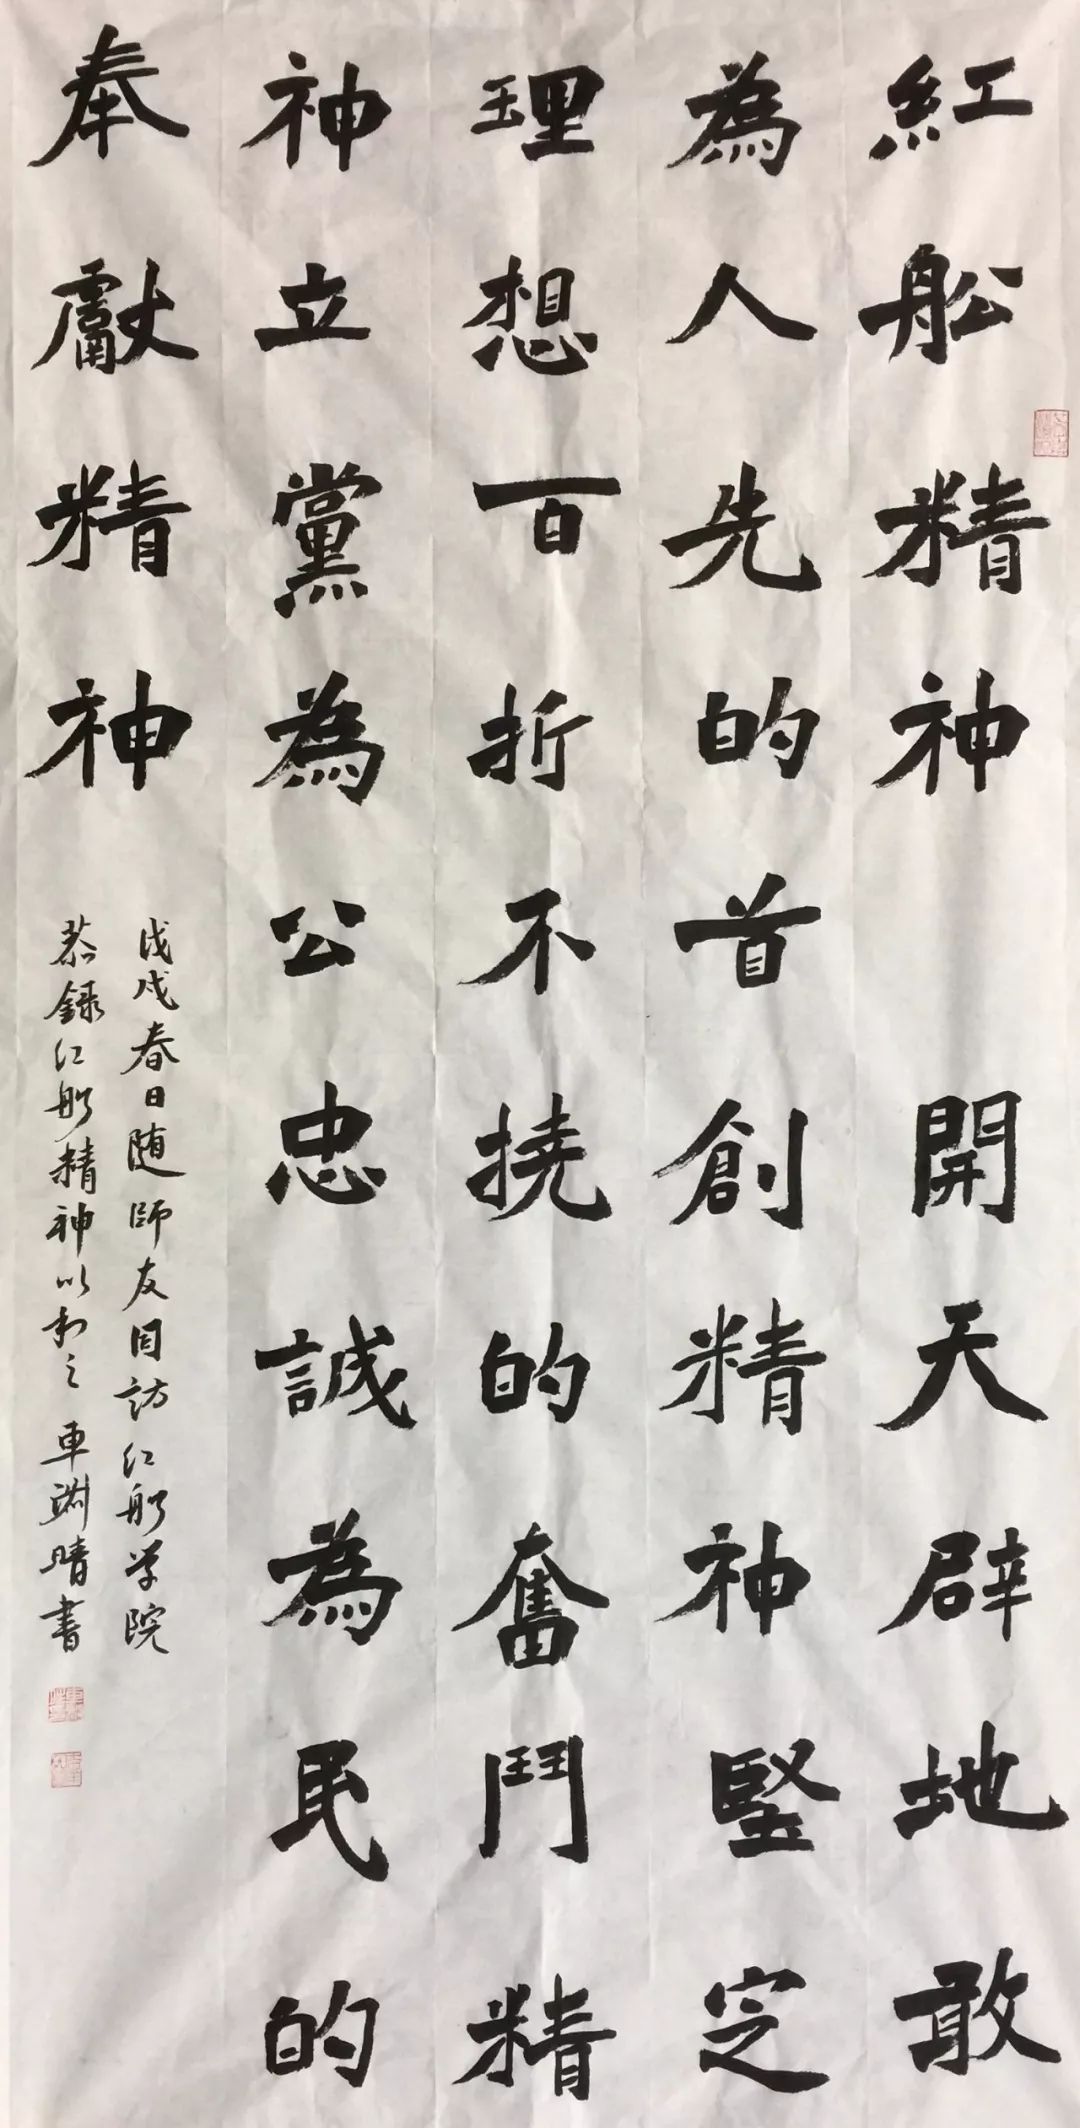 紅舩精神 開天辟地敢
為人先的首創精神堅定
理想百折不撓的奮鬥精
神立黨為公忠誠為民的
奉獻精神
戊戌春日随師友同訪红船学院
恭錄红船精神以记之車淵晴書